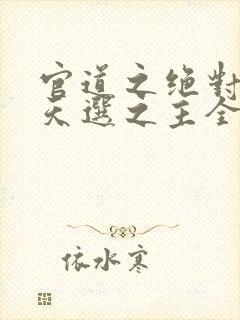 官道之绝對
天選之主全
依水寒